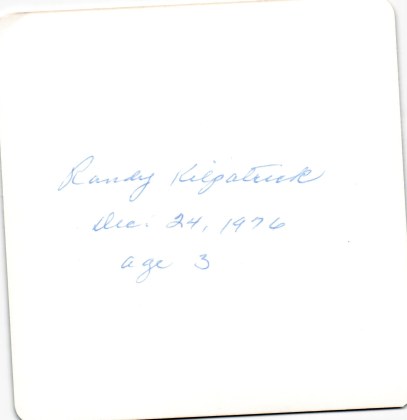 Randy Kilpatrick
Dec. 24, 1976
age 3